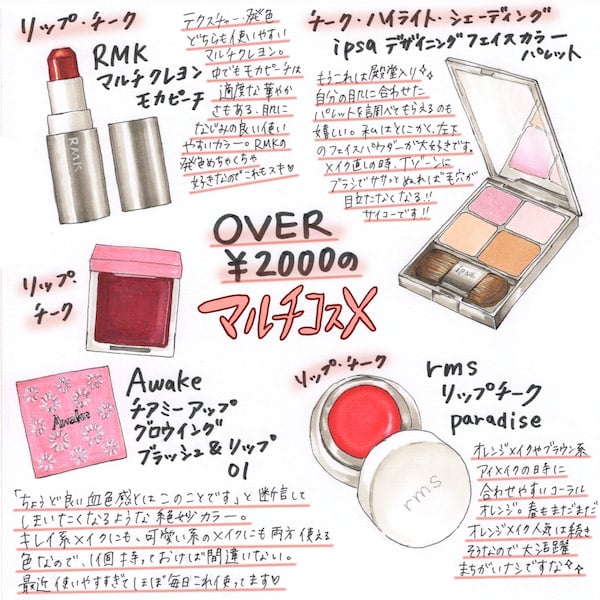 リップ・チーク
RMK
マルチクレヨン
モカピーチ
RMK
テクスチャー・発色
どちらも使いやすい
マルチクレヨン。
中でもモカピーチは
適度な華やか
さもある。肌に
なじみの良い使い
やすいカラー。RMKの
発色めちゃくちゃ
好きなのでこれもスキ♡
チーク・ハイライト・シェーディング
ipsa デザイニングフェイスカラー
パレット
もうこれは殿堂入り✧
自分の肌に合わせた
パレットを調べてもらえるのも
嬉しい。私はとにかく、左上
のフェイスパウダーが大好きです。
メイク直しの時、Tゾーンに
ブラシでササッとぬれば毛穴が
目立たなくなる!!
サイコーです!!
ipsa
OVER
¥2000の
マルチコスメ
リップ・
チーク
Awake
Awake
チアミーアップ
グロウイング
ブラッシュ&リップ
01
「ちょうど良い血色感とはこのことです」と断言して
しまいたくなるような絶妙カラー。
キレイ系メイクにも、可愛い系のメイクにも両方使える
色なので、1個持っておけば間違いない。
最近使いやすすぎてほぼ毎日これ使ってます♡
リップ・チーク
rms
リップチーク
paradise
rms
オレンジメイクやブラウン系
アイメイクの日時に
合わせやすいコーラル
オレンジ。春もまだまだ
オレンジメイク人気は続き
そうなので大活躍
まちがいナシですな✧